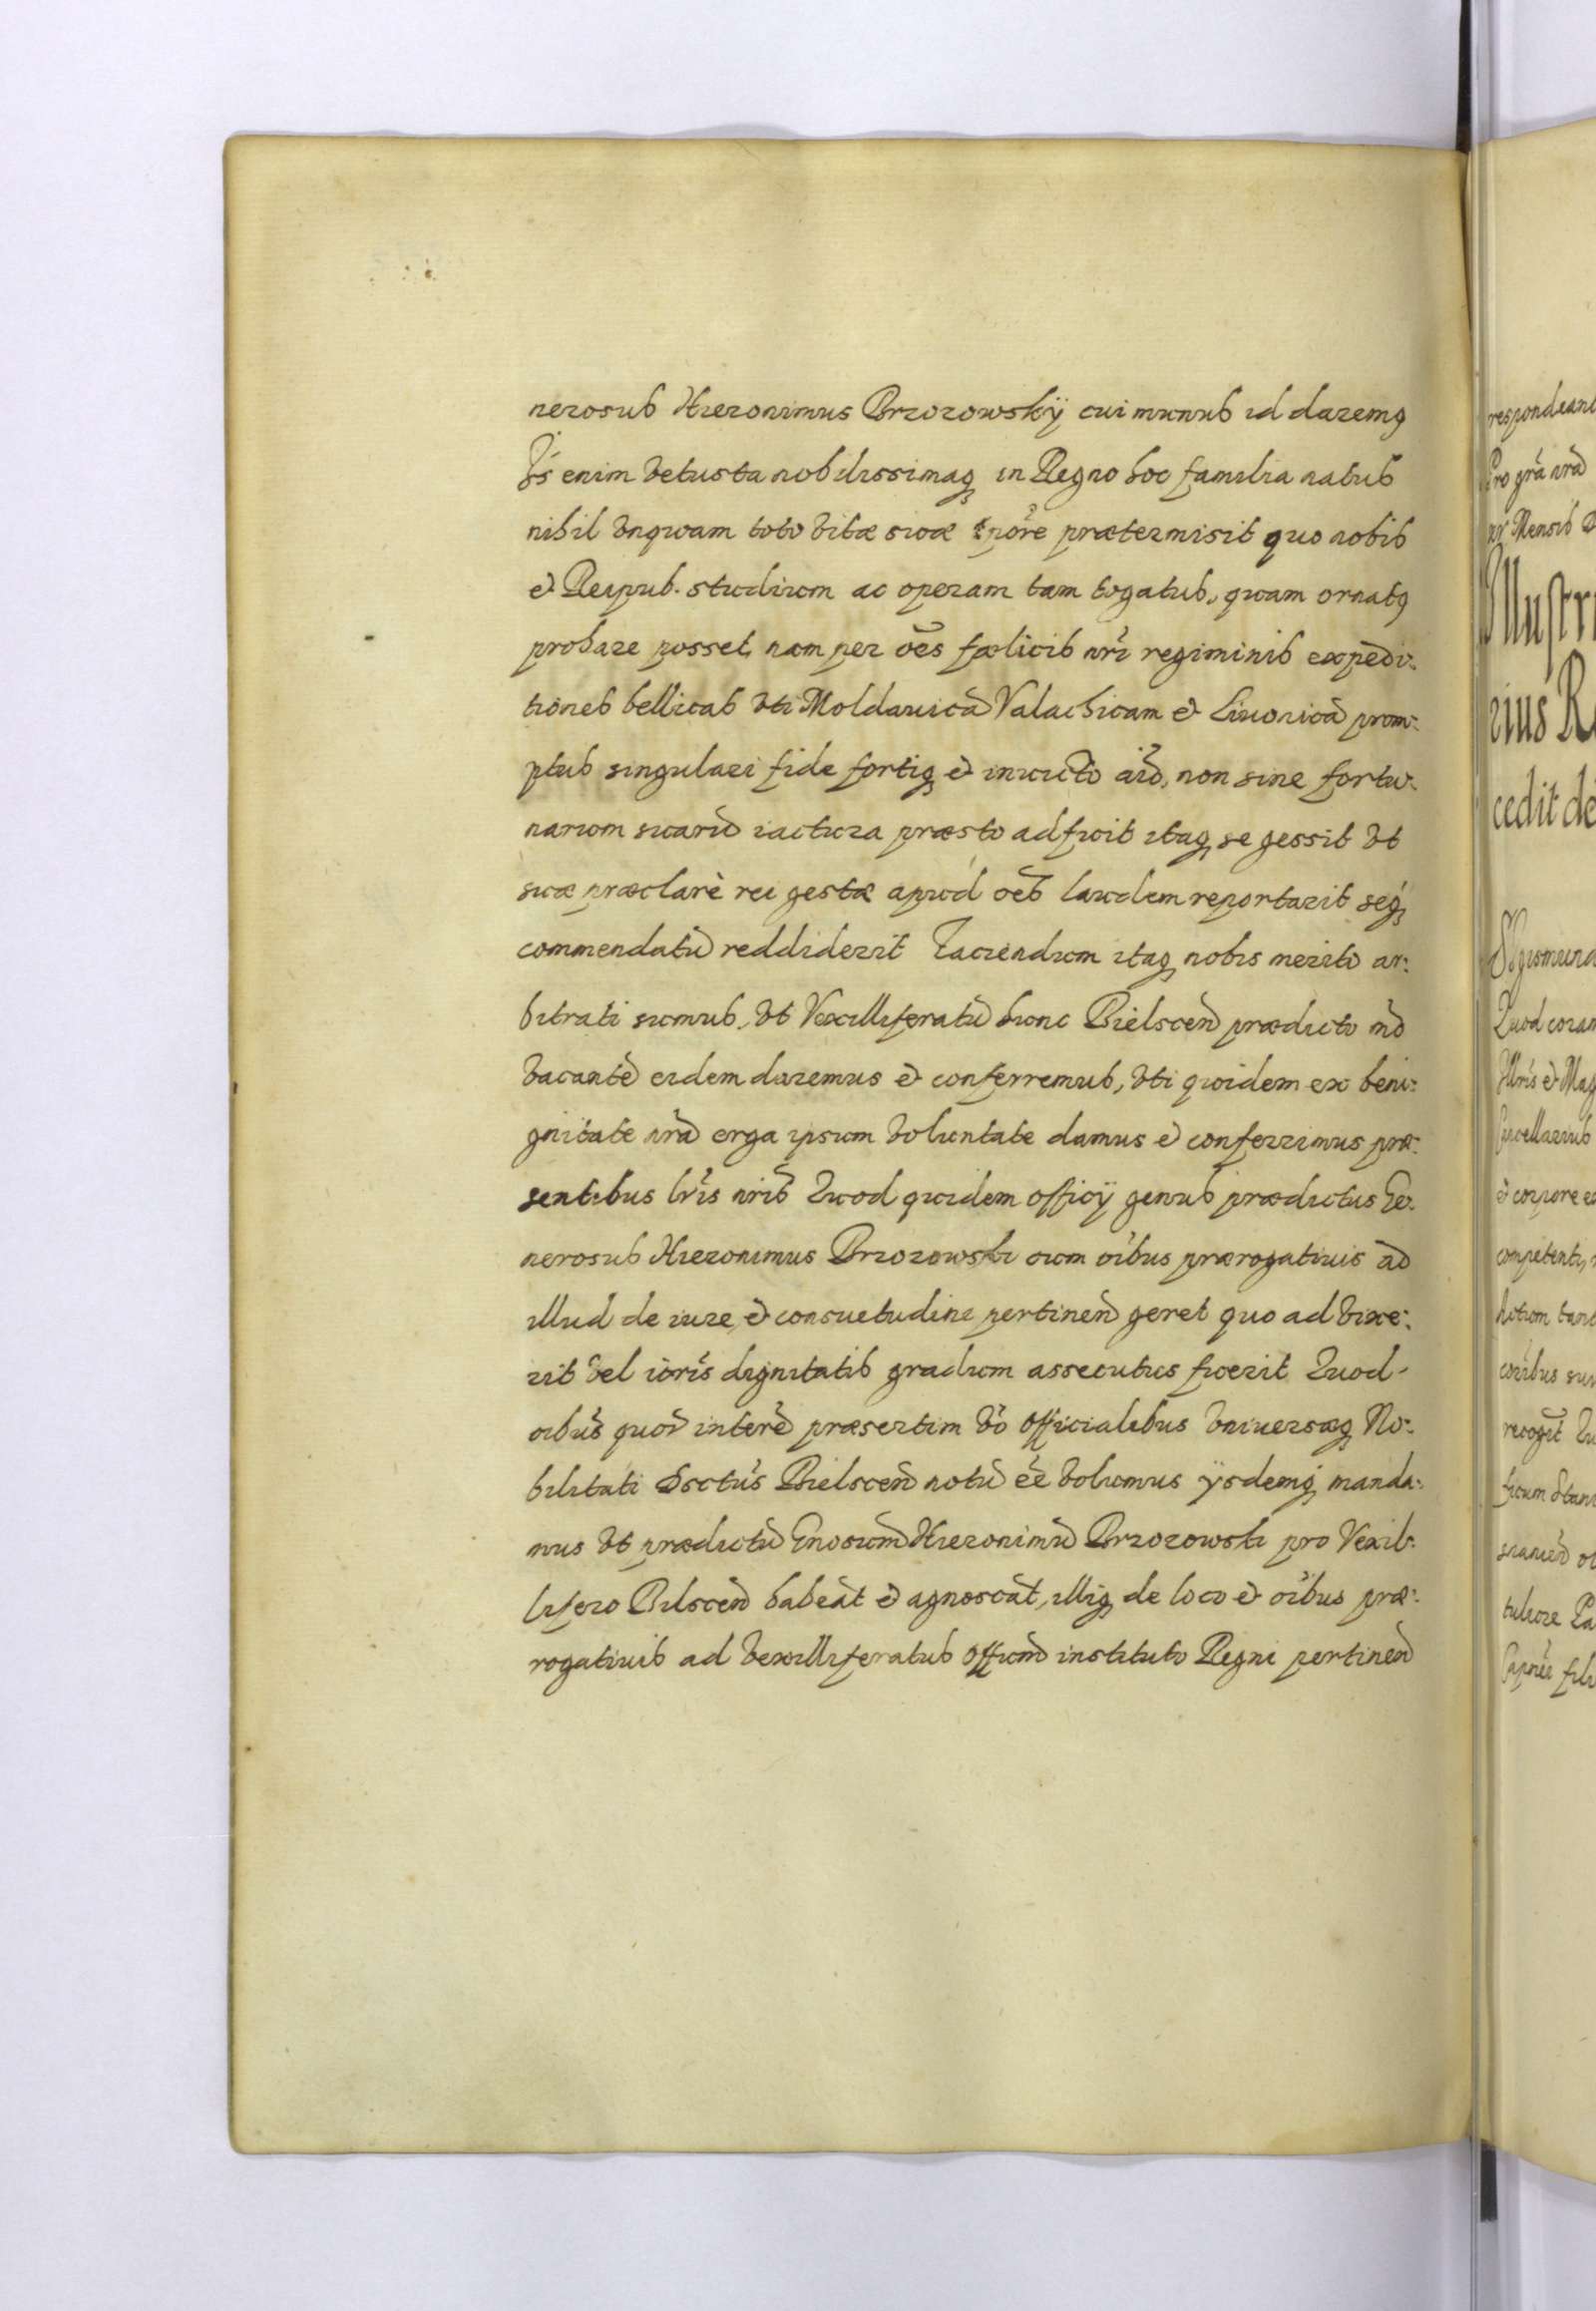 nerosus Hieronimus Brzozowskÿ cui munus id daremꝰ
Is enim vetusta nobilissimaqꝫ in Regno hoc familia natus
nihil vnquam toto vitæ suæ tpõre prætermisit quo nobis
et Reipub. studium ac operam tam togatus, quam ornatꝰ
probare posset, nam per oẽs fælicis nri regiminis expedi:
tiones bellicas vti Moldauicã Valachicam et Liuonicã prom:
ptus singulari fide fortiqꝫ et inuicto aĩo, non sine fortu:
narum suarũ iactura præsto adfuit itaqꝫ se gessit vt
suæ præclarè rei gestæ apud oẽs laudem reportarit seqꝫ
commendatũ reddiderit Faciendum itaqꝫ nobis merito ar:
bitrati sumus, vt Vexilliferatũ hunc Bielsceñ prædicto mõ
vacantẽ eidem daremus et conferremus, vti quidem ex beni:
gnitate nrã erga ipsum voluntate damus et conferrimus præ:
sentibus lris nris Quod quidem officÿ genus prædictus Ge:
nerosus Hieronimus Brzozowski cum oibus prærogatiuis ad
illud de iure et consuetudine pertineñ geret quo ad vixe:
rit vel vloris dignitatis gradum assecutus fuerit Quod
oibus quoꝝ interẽ præsertim vo Officialibus vniuersæqꝫ No:
bilitati dsctus Bielsceñ notũ eẽ volumus ÿsdemqꝫ manda:
mus vt prædictũ Gnosum Hieronimũ Brzozowski pro Vexil:
lifero Bilsceñ habeãt et agnoscãt, illiqꝫ de loco et oibus præ:
rogatiuis ad vexilliferatus Offium instituto Regni pertineñ
respondeant
Pro gra nrã
Mensis
Illustri
rius R
cedit de
Sigismund
Quod coram
Illris et Mag
cancellarius
et corpore
competenti
recogũt